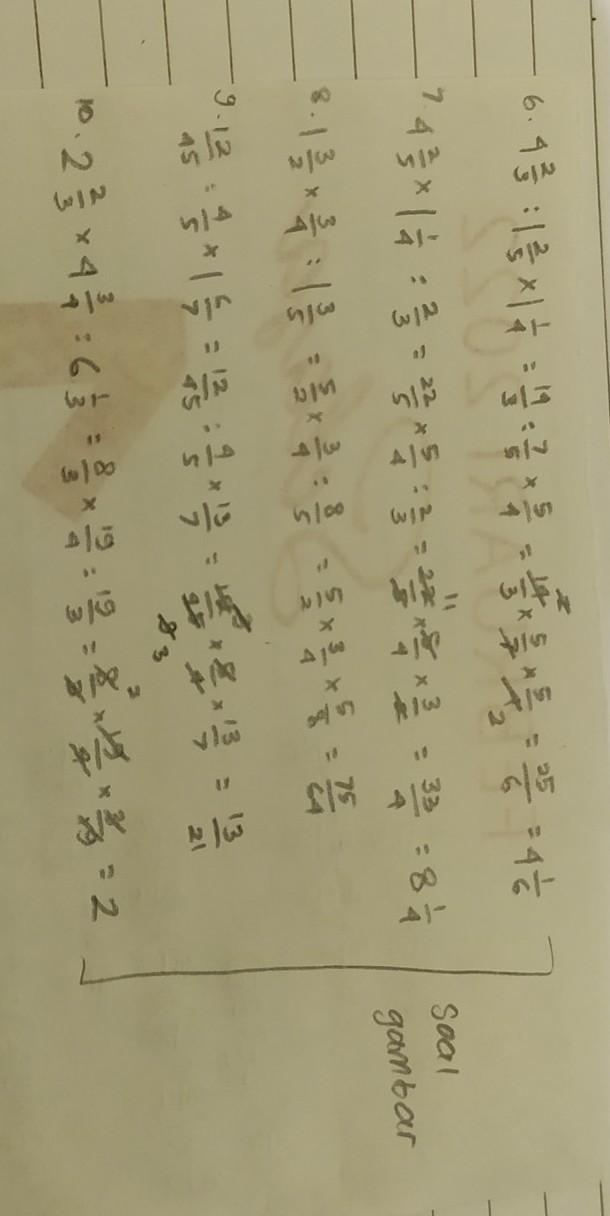 6. 4 2/3 : 1 2/5 × 1 1/4 = 14/3 : 7/5 × 5/4 = 14/3 × 5/7 × 5/4 = 25/6 = 4 1/6
7. 4 2/5 × 1 1/4 : 2/3 = 22/5 × 5/4 : 2/3 = 22/5 × 5/4 × 3/2 = 33/4 = 8 1/4
8. 1 3/2 × 3/4 : 1 3/5 = 5/2 × 3/4 : 8/5 = 5/2 × 3/4 × 5/8 = 75/64
9. 12/45 : 4/5 × 1 6/7 = 12/45 : 4/5 × 13/7 = 12/45 × 5/4 × 13/7 = 13/21
10. 2 2/3 × 4 3/4 : 6 1/3 = 8/3 × 19/4 : 19/3 = 8/3 × 19/4 × 3/19 = 2
Soal
gambar